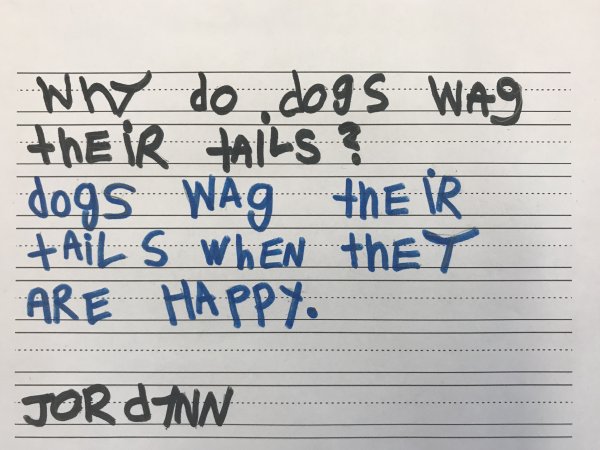 WhY do dogs WAg
thEiR tAiLS?
dogS WAg thEiR
tAiLS WhEN thEY
ARE HAPPY.
JORdYNN